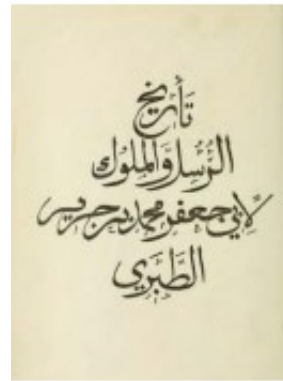 تأريخ
الرُّسل وَالملُوك
لأبي جعفر محمد بن جرير
الطَّبَرِي